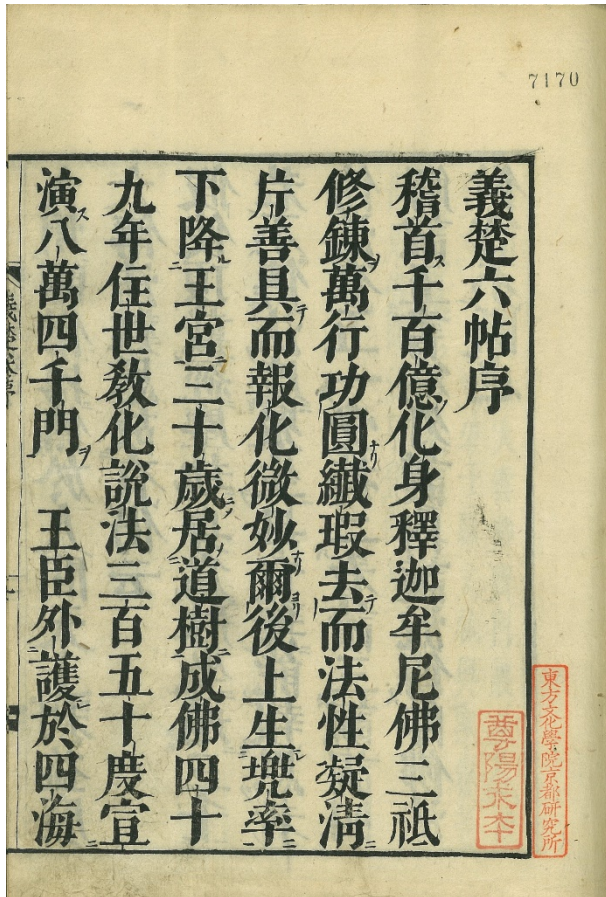 7170
義楚六帖序
稽首千百億化身釋迦牟尼佛三祇
修鍊萬行功圓纎瑕去而法性凝清
片善具而報化微妙爾後上生兜率
下降王宮三十歲居道樹成佛四十
九年住世教化說法三百五十度宣
演八萬四千門　王臣外護於四海
東方文化學院京都研究所